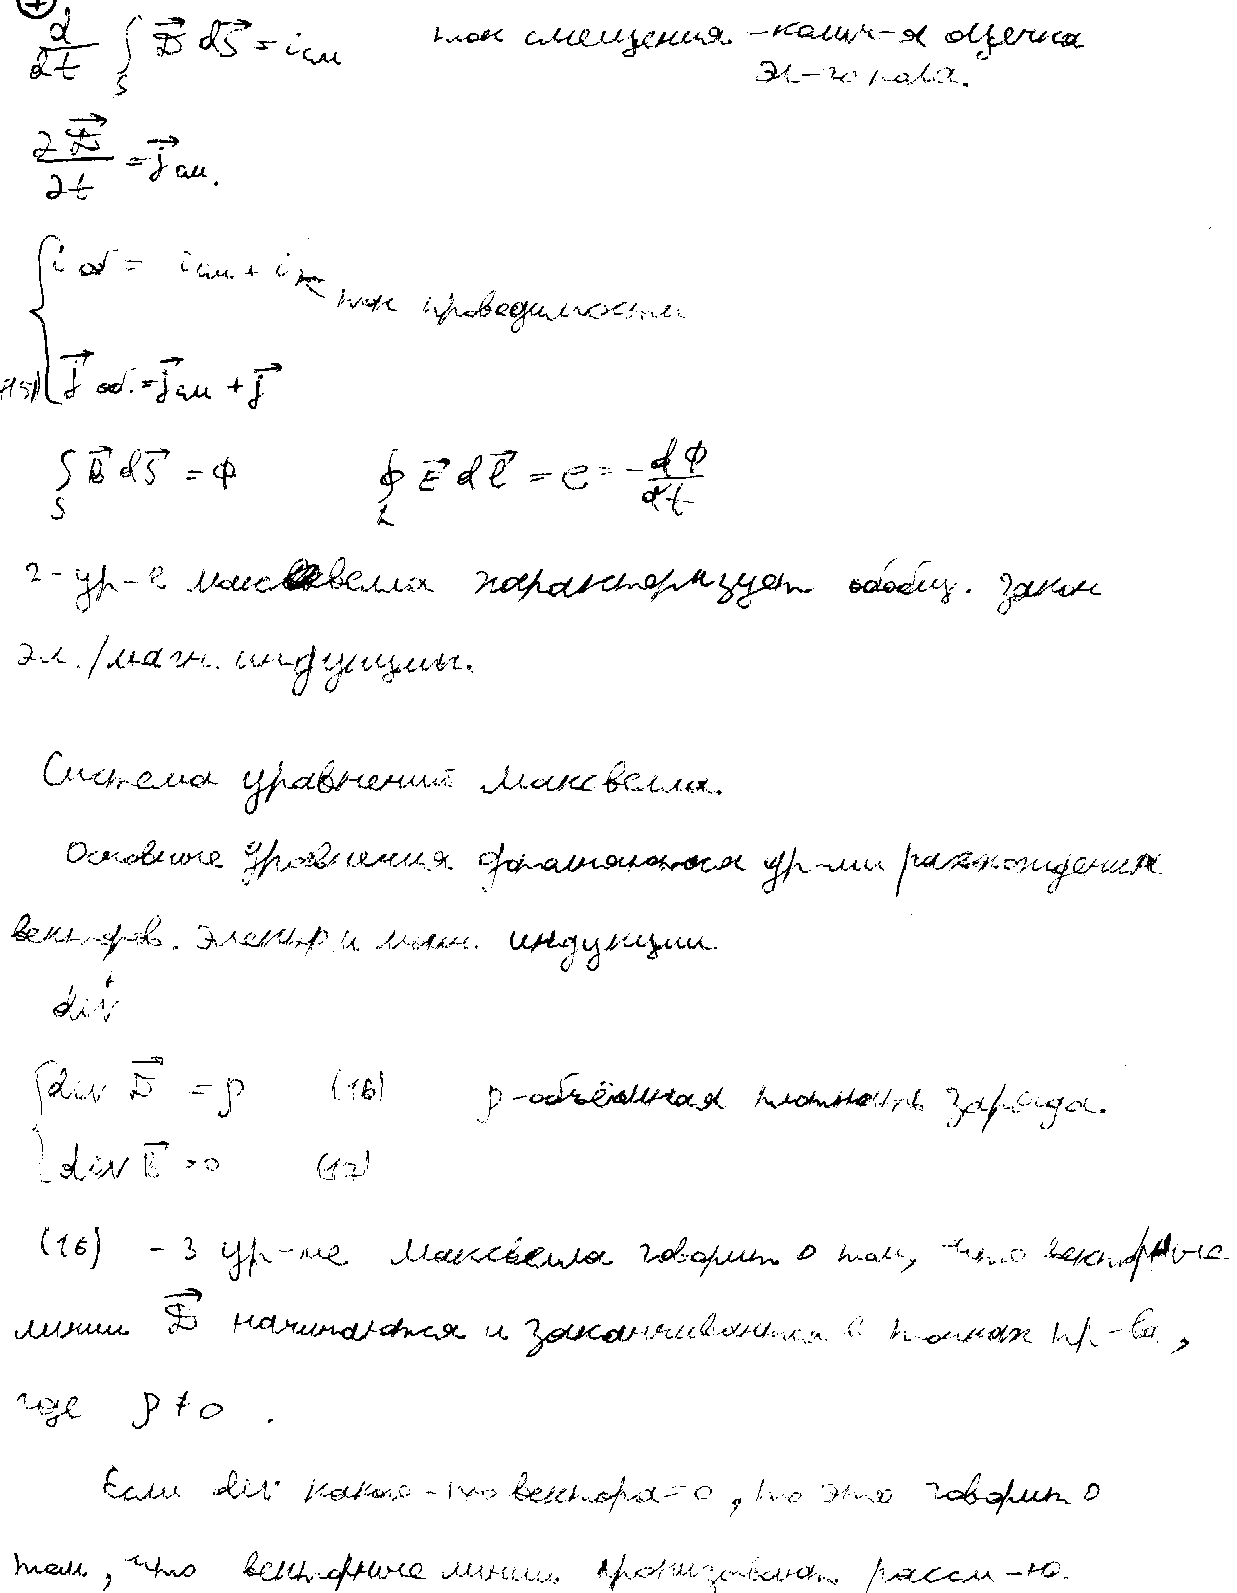 d/dt ∫_S D⃗ dS⃗ = i см ток смещения - колич-я оценка
эл-го поля.
∂D⃗/∂t = j⃗ см.
i об = i см + i ток проводимости
(15) j⃗ об. = j⃗ см + j⃗
∫_S B⃗ dS⃗ = Φ ∮_L E⃗ dl⃗ = e = - dΦ/dt
2-ур-е Максвелла характеризует обобщ. закон
эл./магн. индукции.
Система уравнений Максвелла.
Основные уравнения ур-ми расхождения
векторов. электр и магн. индукции.
div
div D⃗ = ρ (16) ρ-объёмная плотность заряда.
div B⃗ = 0 (17)
(16) - 3 ур-ие Максвелла говорит о том, что векторные
линии D⃗ начинаются и заканчиваются в точках пр-ва,
где ρ ≠ 0.
Если div какого-то вектора = 0, то это говорит о
том, что векторные линии пронизывают